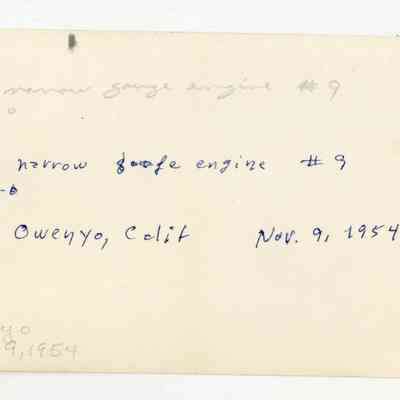 narrow gauge engine #9
o
narrow gage engine #9
-6
Owenyo, Calif Nov. 9, 1954
yo
9, 1954